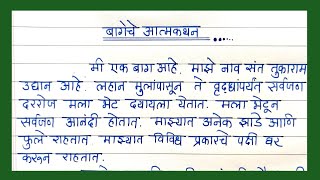 बागेचे आत्मकथन
मी एक बाग आहे. माझे नाव संत तुकाराम
उद्यान आहे. लहान मुलांपासून ते वृद्धांपर्यंत सर्वजण
दररोज मला भेट द्यायला येतात. मला भेटून
सर्वजण आनंदी होतात. माझ्यात अनेक झाडे आणि
फुले राहतात. माझ्यात विविध प्रकारचे पक्षी घर
करून राहतात.